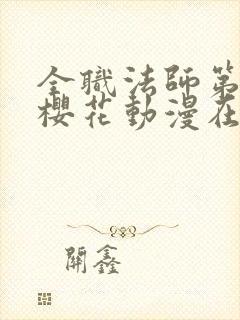 全職法師第
櫻花動漫在
開鑫